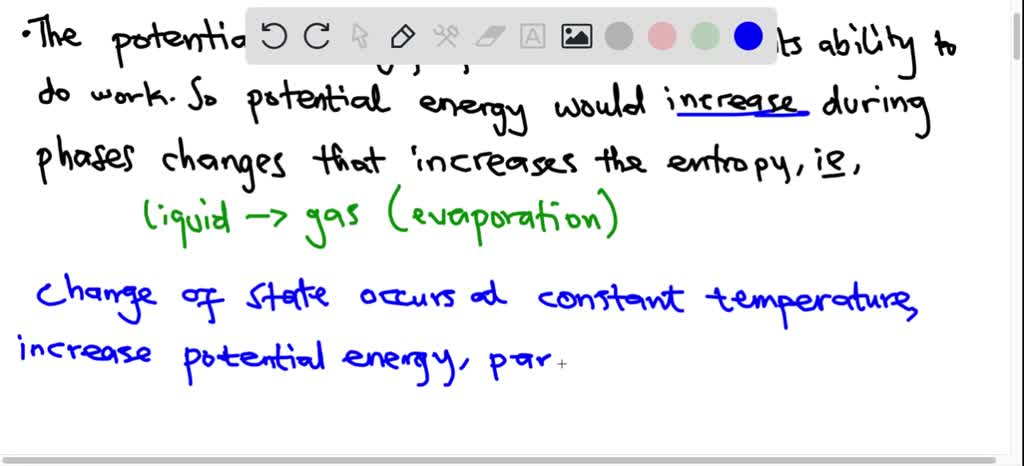 ·The potentia ts ability to
do work. So potential energy would increase during
phases changes that increases the entropy, ie,
liquid → gas (evaporation)
change of state occurs at constant temperature,
increase potential energy, par